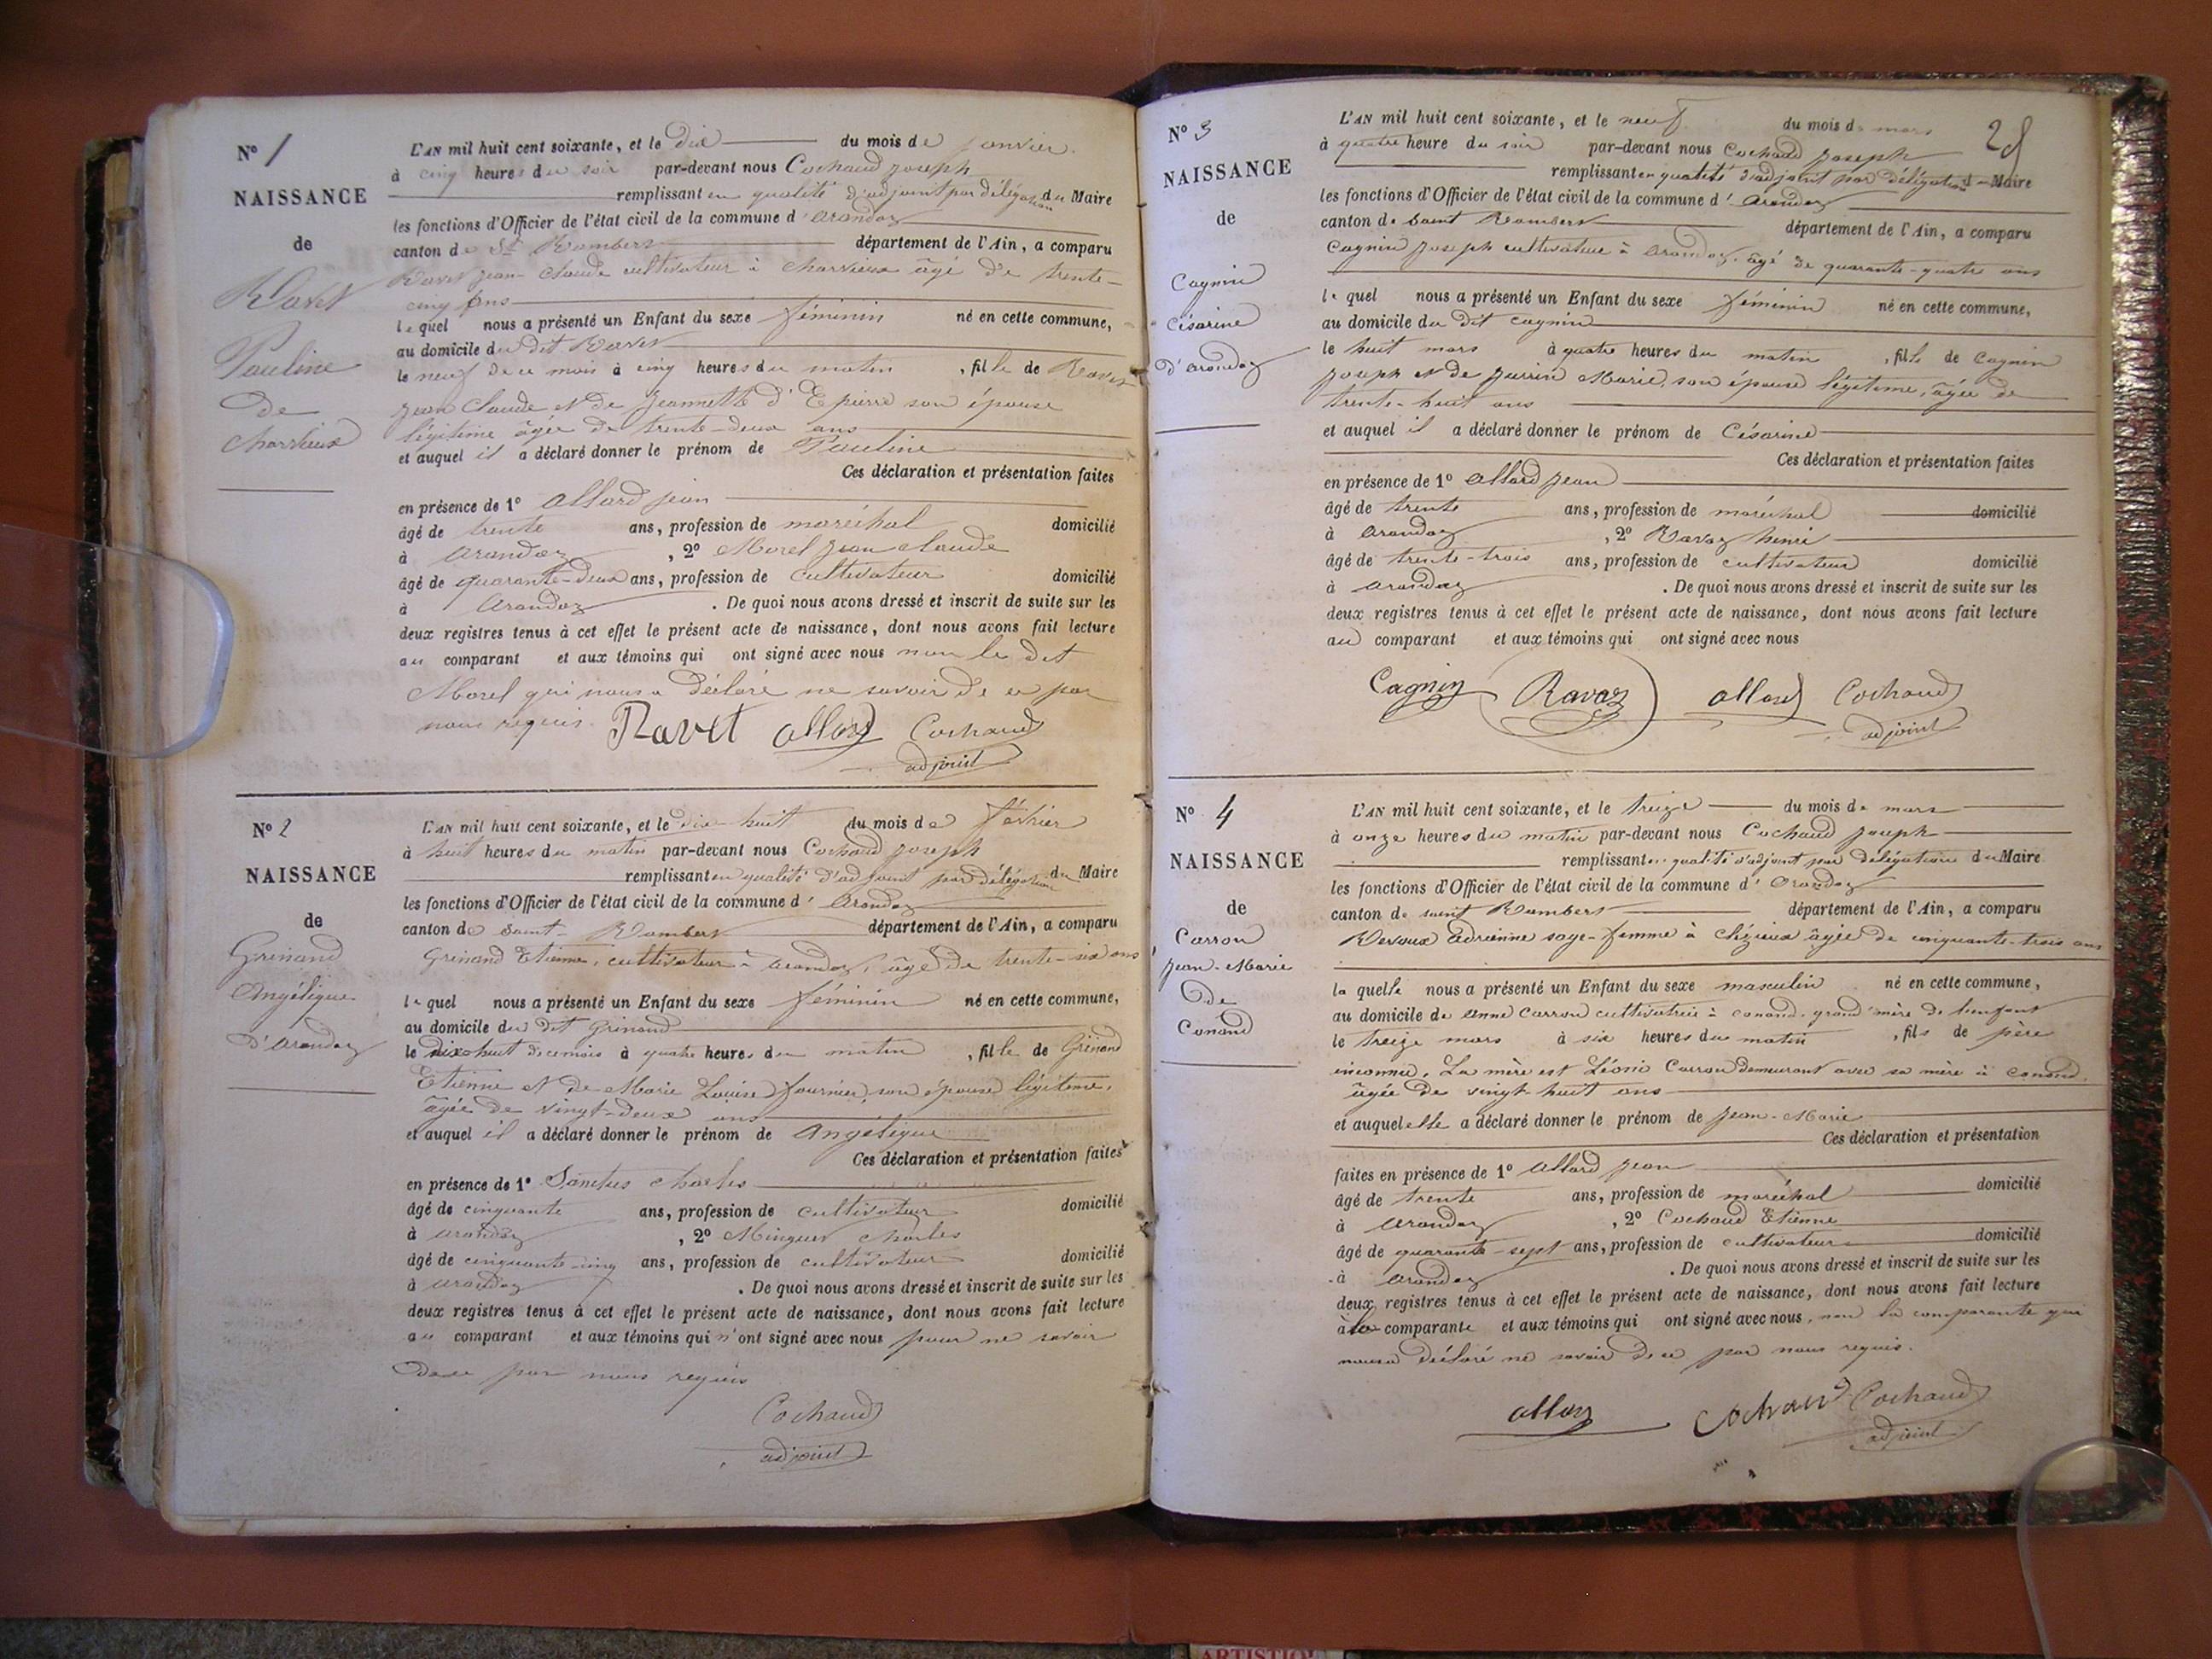 N° 1
NAISSANCE
de
Ravet
Pauline
de
Charvieux
L'AN mil huit cent soixante, et le dix du mois de janvier
à cinq heures du soir par-devant nous Cochaud joseph
remplissant en qualité d'adjoint par délégation du Maire
les fonctions d'Officier de l'état civil de la commune d'arandaz
canton de St Rambert département de l'Ain, a comparu
Ravet jean-Claude cultivateur à Charvieux âgé de trente-
cinq ans
lequel nous a présenté un Enfant du sexe féminin né en cette commune,
au domicile du dit Ravet
le neuf de ce mois à cinq heures du matin, fille de Ravet
jean Claude et de jeannette d'Epierre son épouse
légitime âgée de trente-deux ans
et auquel il a déclaré donner le prénom de Pauline
Ces déclaration et présentation faites
en présence de 1° allard jean
âgé de trente ans, profession de maréchal domicilié
à arandaz, 2° Morel jean claude
âgé de quarante-deux ans, profession de cultivateur domicilié
à arandaz. De quoi nous avons dressé et inscrit de suite sur les
deux registres tenus à cet effet le présent acte de naissance, dont nous avons fait lecture
au comparant et aux témoins qui ont signé avec nous non le dit
Morel qui nous a déclaré ne savoir de ce par
nous requis. Ravet allard Cochaud
adjoint
N° 2
NAISSANCE
de
Grinand
Angélique
d'arandaz
L'AN mil huit cent soixante, et le dix-huit du mois de février
à huit heures du matin par-devant nous Cochaud joseph
remplissant en qualité d'adjoint par délégation du Maire
les fonctions d'Officier de l'état civil de la commune d'arandaz
canton de Saint-Rambert département de l'Ain, a comparu
Grinand Etienne, cultivateur à arandaz, âgé de trente-six ans
lequel nous a présenté un Enfant du sexe féminin né en cette commune,
au domicile du dit Grinand
le dix-huit de ce mois à quatre heures du matin, fille de Grinand
Etienne et de Marie Louise fournier, son épouse légitime,
âgée de vingt-deux ans
et auquel il a déclaré donner le prénom de angélique
Ces déclaration et présentation faites
en présence de 1° Sanctus charles
âgé de cinquante ans, profession de cultivateur domicilié
à arandaz, 2° Minguet charles
âgé de cinquante-cinq ans, profession de cultivateur domicilié
à arandaz. De quoi nous avons dressé et inscrit de suite sur les
deux registres tenus à cet effet le présent acte de naissance, dont nous avons fait lecture
au comparant et aux témoins qui n'ont signé avec nous pour ne savoir
de ce par nous requis
Cochaud
adjoint
28
N° 3
NAISSANCE
de
Cagnin
Césarine
d'arandaz
L'AN mil huit cent soixante, et le neuf du mois de mars
à quatre heure du soir par-devant nous Cochaud joseph
remplissant en qualité d'adjoint par délégation du Maire
les fonctions d'Officier de l'état civil de la commune d'arandaz
canton de saint Rambert département de l'Ain, a comparu
Cagnin joseph cultivateur à arandaz, âgé de quarante-quatre ans
lequel nous a présenté un Enfant du sexe féminin né en cette commune,
au domicile du dit cagnin
le huit mars à quatre heures du matin, fille de cagnin
joseph et de Marie, son épouse légitime, âgée de
trente-huit ans
et auquel il a déclaré donner le prénom de Césarine
Ces déclaration et présentation faites
en présence de 1° allard jean
âgé de trente ans, profession de maréchal domicilié
à arandaz, 2° Ravaz henri
âgé de trente-trois ans, profession de cultivateur domicilié
à arandaz. De quoi nous avons dressé et inscrit de suite sur les
deux registres tenus à cet effet le présent acte de naissance, dont nous avons fait lecture
au comparant et aux témoins qui ont signé avec nous
Cagnin Ravaz allard Cochaud
adjoint
N° 4
NAISSANCE
de
Carron
jean-Marie
de
Conand
L'AN mil huit cent soixante, et le treize du mois de mars
à onze heures du matin par-devant nous Cochaud joseph
remplissant en qualité d'adjoint par délégation du Maire
les fonctions d'Officier de l'état civil de la commune d'arandaz
canton de saint Rambert département de l'Ain, a comparu
adrienne sage-femme à chézieux âgée de cinquante-trois ans
laquelle nous a présenté un Enfant du sexe masculin né en cette commune,
au domicile de anne Carron cultivatrice à conand, grand'mère de l'enfant
le treize mars à six heures du matin, fils de père
inconnu. La mère est Léonie Carron demeurant avec sa mère à conand,
âgée de vingt-huit ans
et auquel elle a déclaré donner le prénom de jean-Marie
Ces déclaration et présentation
faites en présence de 1° allard jean
âgé de trente ans, profession de maréchal domicilié
à arandaz, 2° Cochaud Etienne
âgé de quarante-sept ans, profession de cultivateur domicilié
à arandaz. De quoi nous avons dressé et inscrit de suite sur les
deux registres tenus à cet effet le présent acte de naissance, dont nous avons fait lecture
à la comparante et aux témoins qui ont signé avec nous, non la comparante qui
nous a déclaré ne savoir de ce par nous requis.
allard Cochaud Cochaud
adjoint